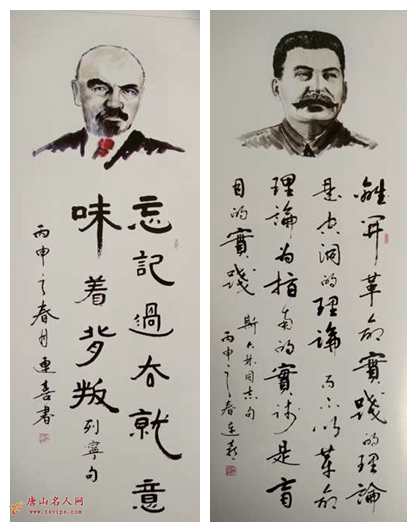 忘記過去就意
味着背叛 列寧句
丙申之春月連喜書
離開革命實踐的理論
是空洞的理論而不以革命
理論为指南的實践是盲
目的實踐
斯大林同志句
丙申之春连喜
唐山名人网
www.tsvips.com